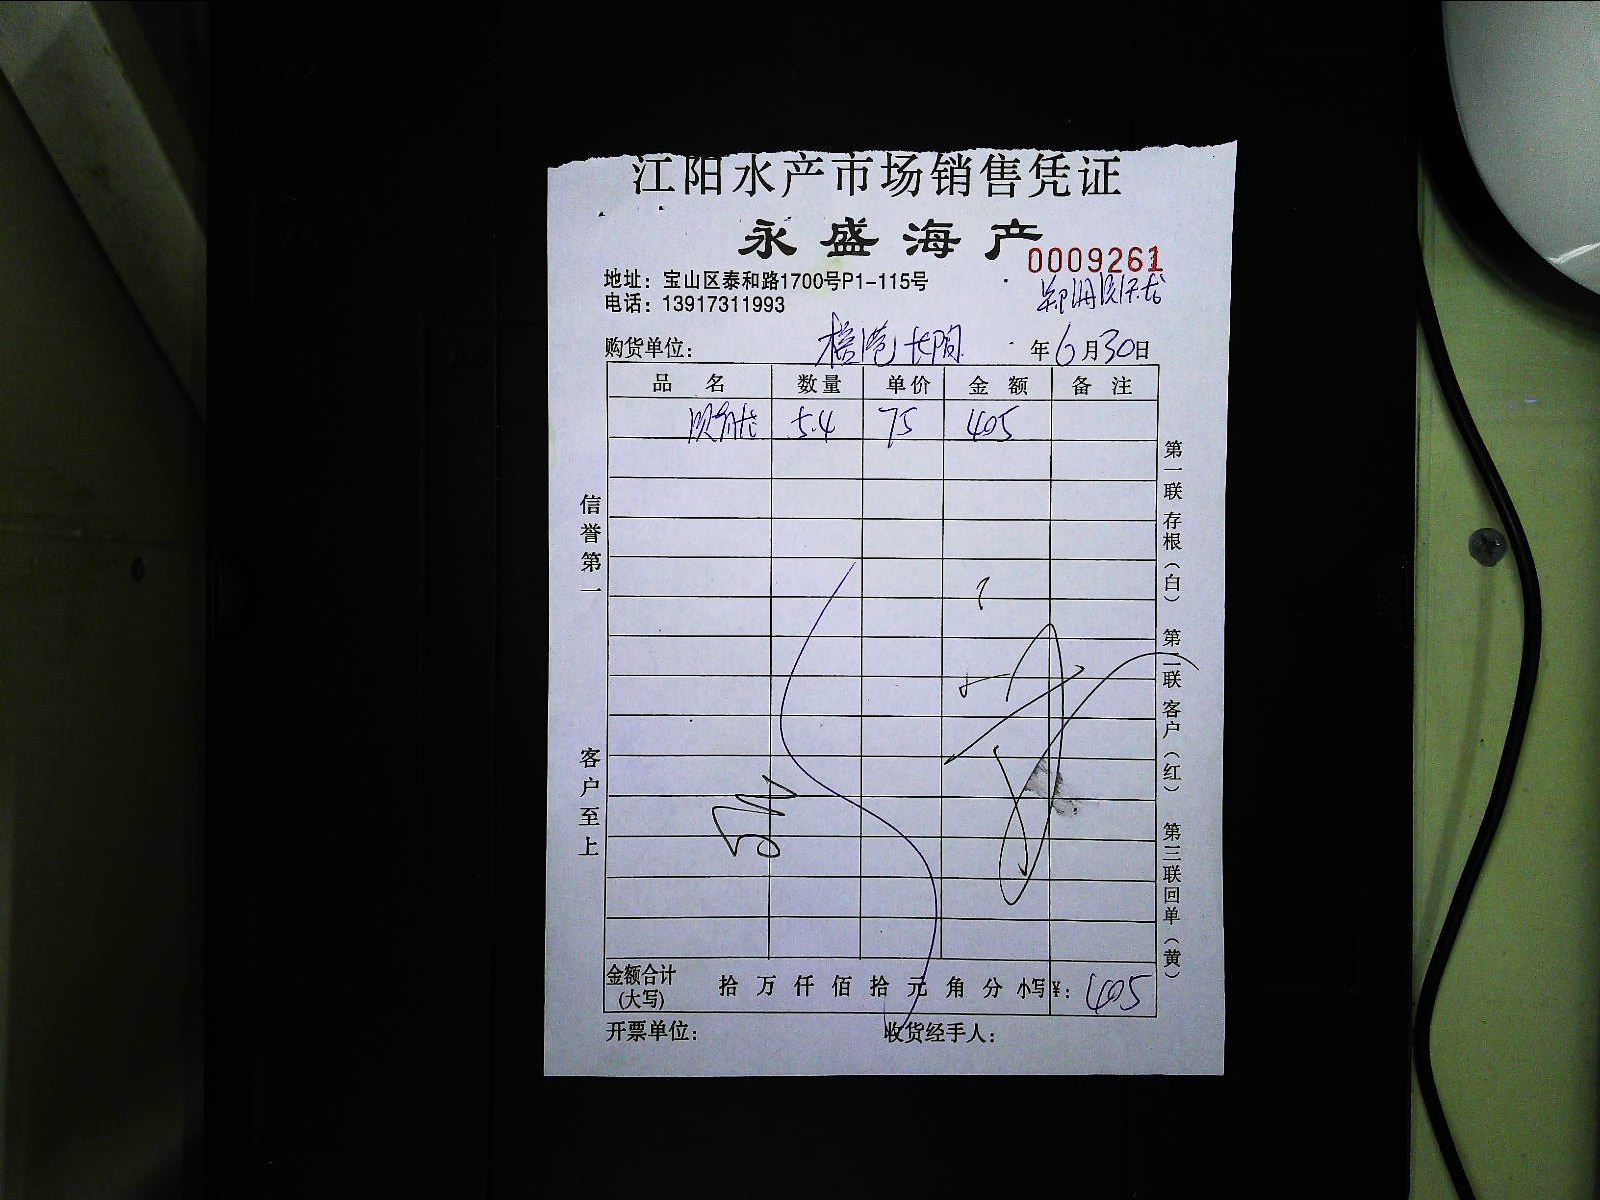 江阳水产市场销售凭证
永盛海产
0009261
地址：宝山区泰和路1700号P1-115号
电话：13917311993
购货单位： 年6月30日
品名 数量 单价 金额 备注
5.4 75 405
信誉第一
客户至上
第一联存根（白） 第二联客户（红） 第三联回单（黄）
金额合计（大写） 拾万仟佰拾元角分 小写¥：405
开票单位： 收货经手人：